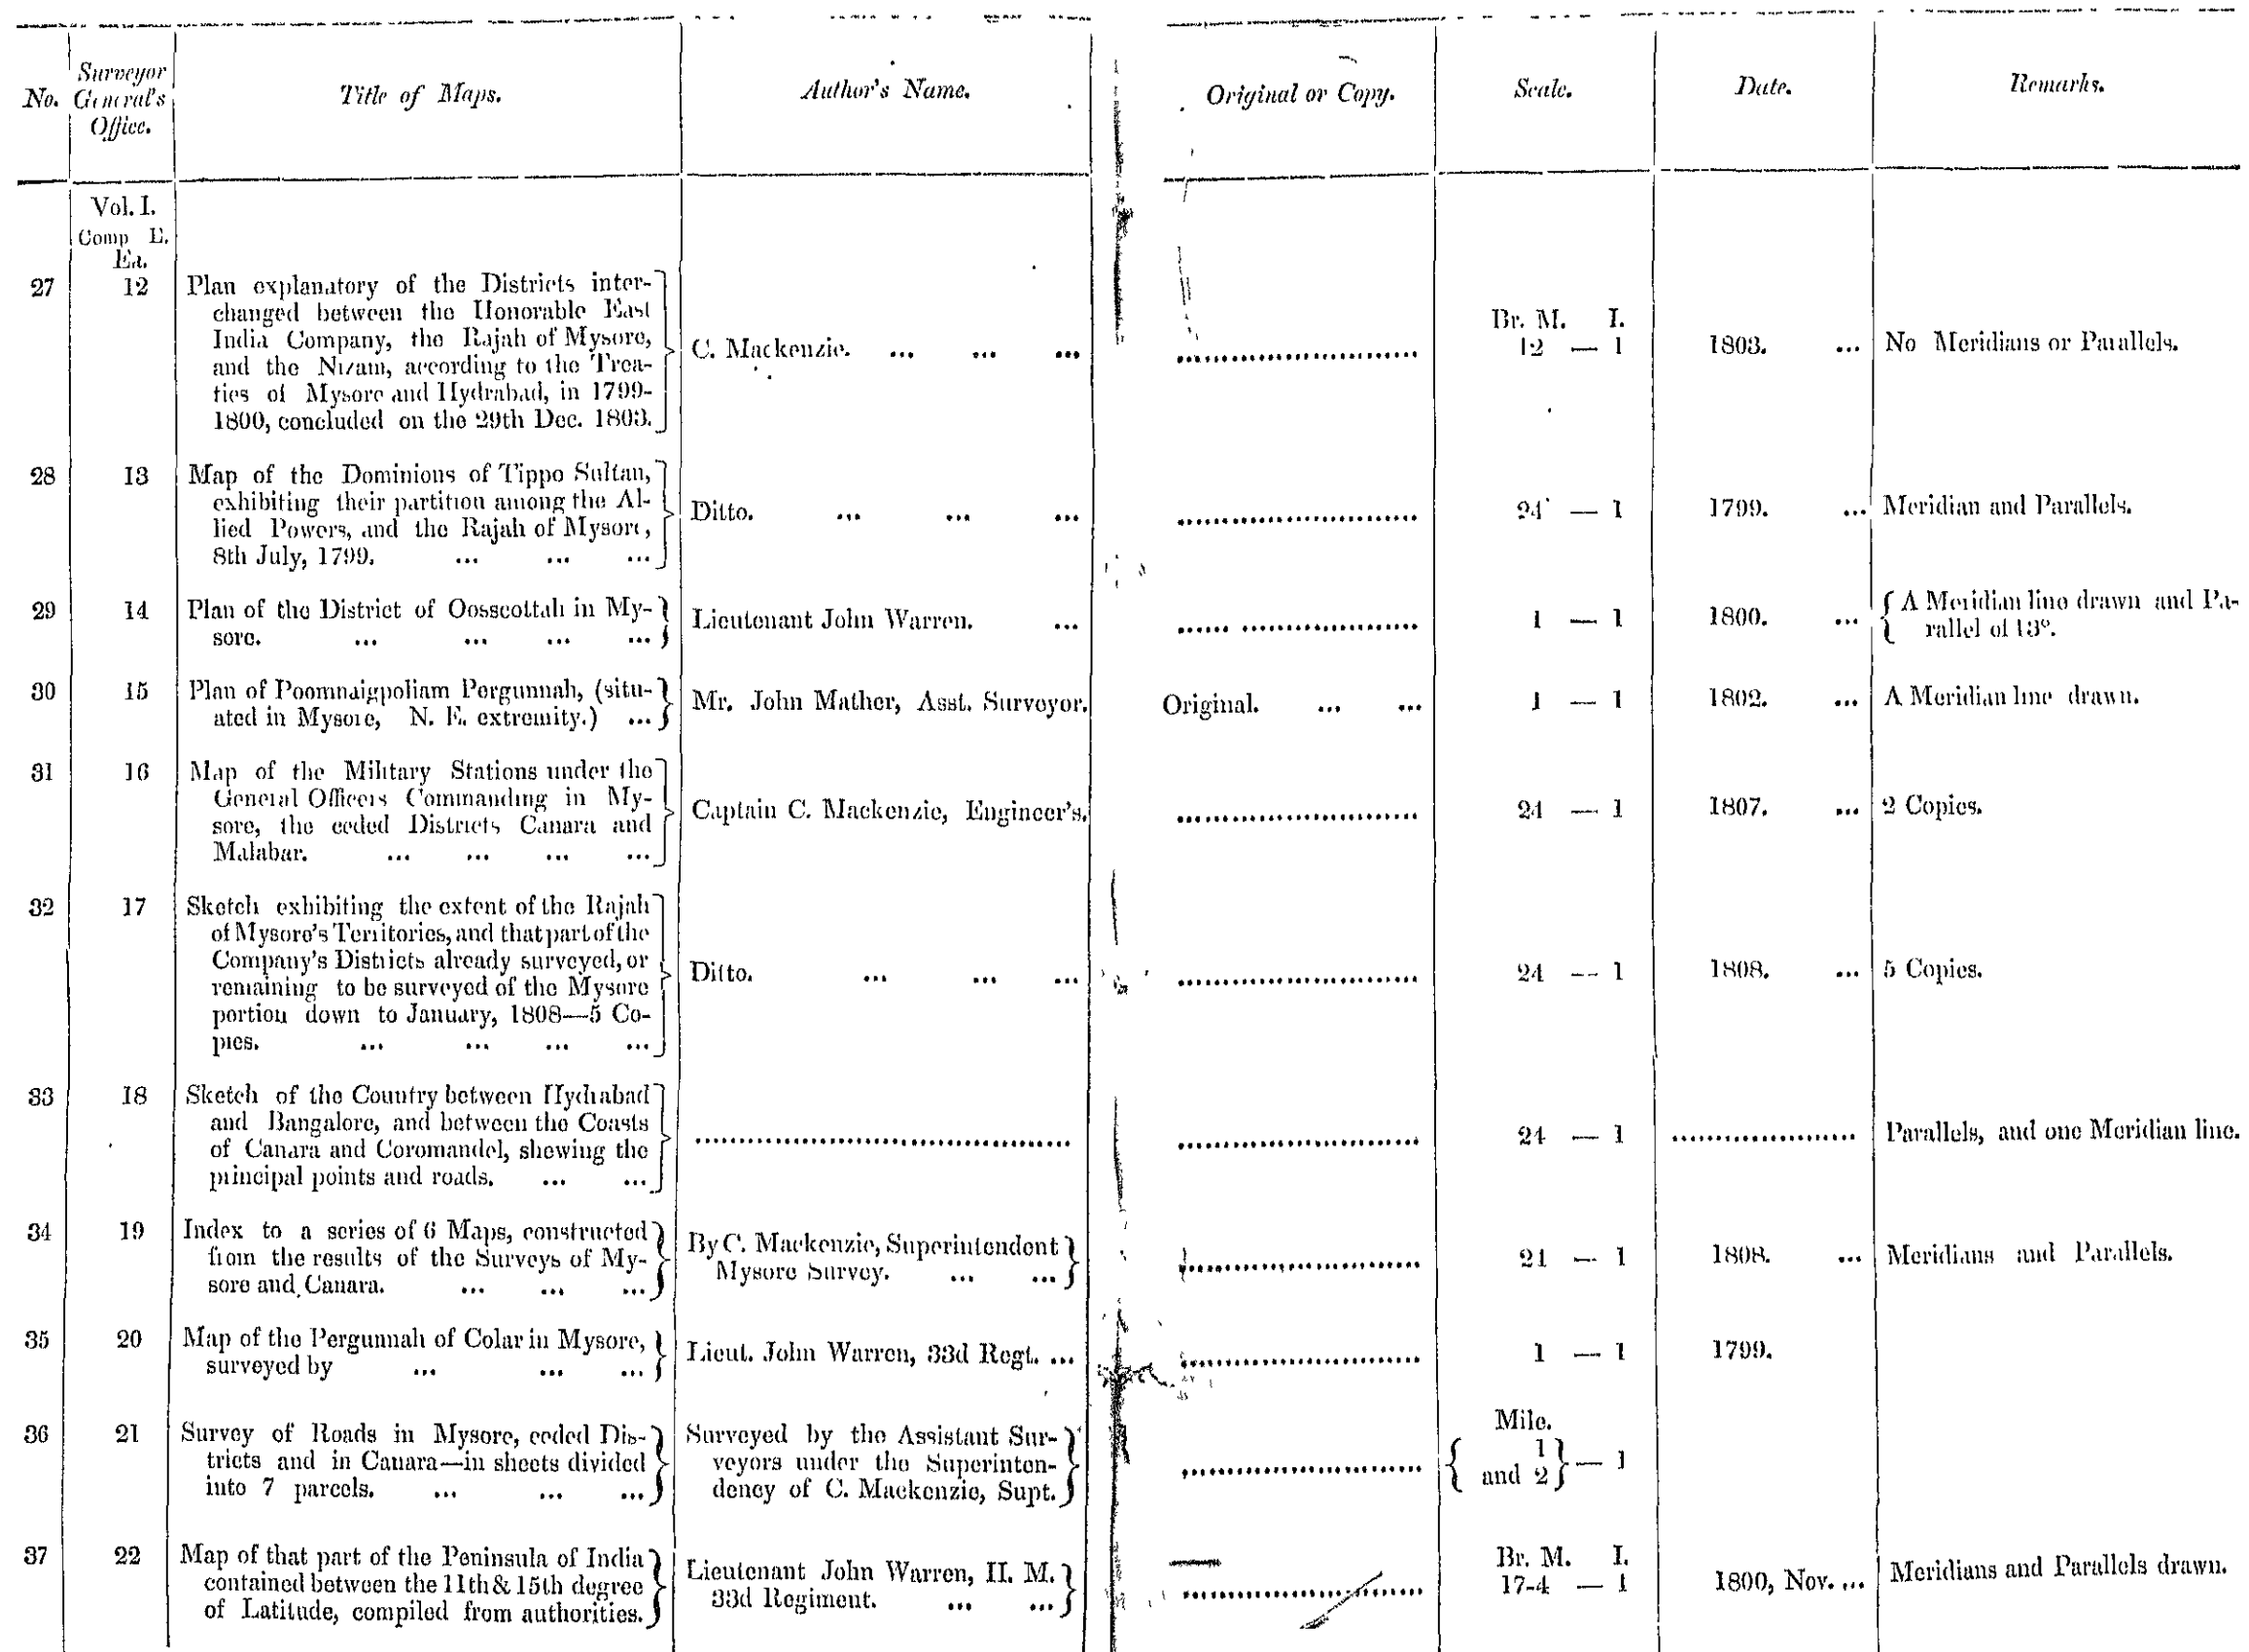 No. Surveyor General's Office. Title of Maps. Author's Name. Original or Copy. Scale. Date. Remarks.
Vol. I.
Comp E.
Ea.
27 12 Plan explanatory of the Districts inter-
changed between the Honorable East
India Company, the Rajah of Mysore,
and the Nizam, according to the Trea-
ties of Mysore and Hydrabad, in 1799-
1800, concluded on the 29th Dec. 1803.
C. Mackenzie. ... ... ...
Br. M. I.
12 — 1
1803. ...
No Meridians or Parallels.
28 13 Map of the Dominions of Tippo Sultan,
exhibiting their partition among the Al-
lied Powers, and the Rajah of Mysore,
8th July, 1799. ... ... ...
Ditto. ... ... ...
24 — 1
1799. ...
Meridian and Parallels.
29 14 Plan of the District of Oosscottah in My-
sore. ... ... ... ...
Lieutenant John Warren. ...
1 — 1
1800. ...
A Meridian line drawn and Pa-
rallel of 13°.
30 15 Plan of Poomnaigpoliam Pergunnah, (situ-
ated in Mysore, N. E. extremity.) ...
Mr. John Mather, Asst. Surveyor.
Original. ... ...
1 — 1
1802. ...
A Meridian line drawn.
31 16 Map of the Military Stations under the
General Officers Commanding in My-
sore, the ceded Districts Canara and
Malabar. ... ... ... ...
Captain C. Mackenzie, Engineer's.
24 — 1
1807. ...
2 Copies.
32 17 Sketch exhibiting the extent of the Rajah
of Mysore's Territories, and that part of the
Company's Districts already surveyed, or
remaining to be surveyed of the Mysore
portion down to January, 1808—5 Co-
pies. ... ... ... ...
Ditto. ... ... ...
24 — 1
1808. ...
5 Copies.
33 18 Sketch of the Country between Hydrabad
and Bangalore, and between the Coasts
of Canara and Coromandel, shewing the
principal points and roads. ... ...
24 — 1
Parallels, and one Meridian line.
34 19 Index to a series of 6 Maps, constructed
from the results of the Surveys of My-
sore and Canara. ... ... ...
By C. Mackenzie, Superintendent
Mysore Survey. ... ...
24 — 1
1808. ...
Meridians and Parallels.
35 20 Map of the Pergunnah of Colar in Mysore,
surveyed by ... ... ...
Lieut. John Warren, 33d Regt. ...
1 — 1
1799.
36 21 Survey of Roads in Mysore, ceded Dis-
tricts and in Canara—in sheets divided
into 7 parcels. ... ... ...
Surveyed by the Assistant Sur-
veyors under the Superinten-
dency of C. Mackenzie, Supt.
Mile.
1
and 2 — 1
37 22 Map of that part of the Peninsula of India
contained between the 11th & 15th degree
of Latitude, compiled from authorities.
Lieutenant John Warren, H. M.
33d Regiment. ... ...
Br. M. I.
17-4 — 1
1800, Nov. ...
Meridians and Parallels drawn.